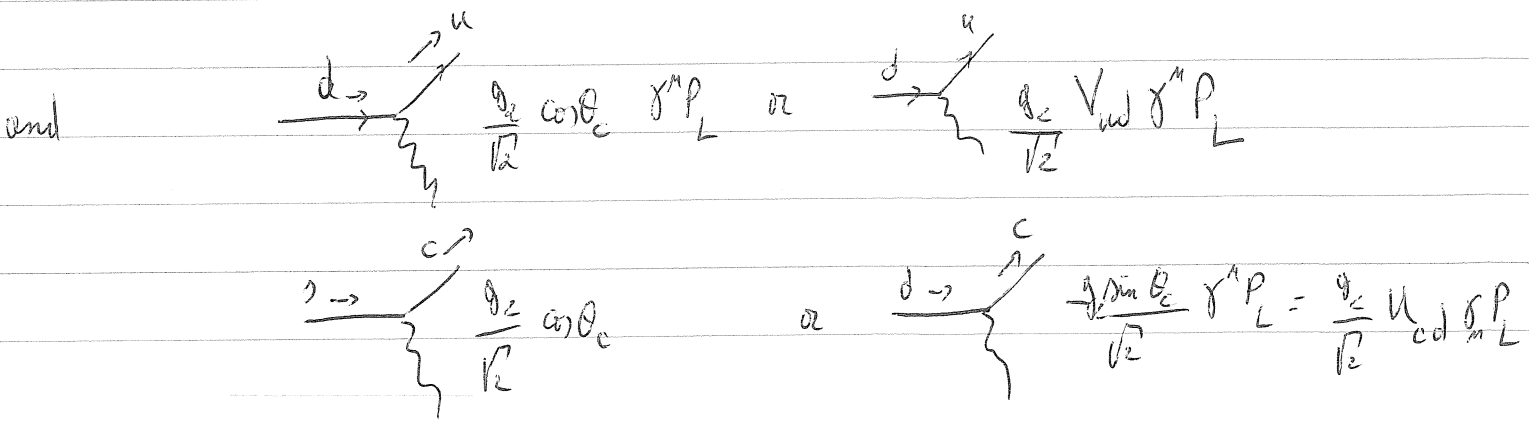 u u
and d → g₂/√2 cosθ_c γ^μ P_L or d g₂/√2 V_ud γ^μ P_L
c c
s → g₂/√2 cosθ_c or d → -g₂ sin θ_c/√2 γ^μ P_L = g₂/√2 U_cd γ_μ P_L